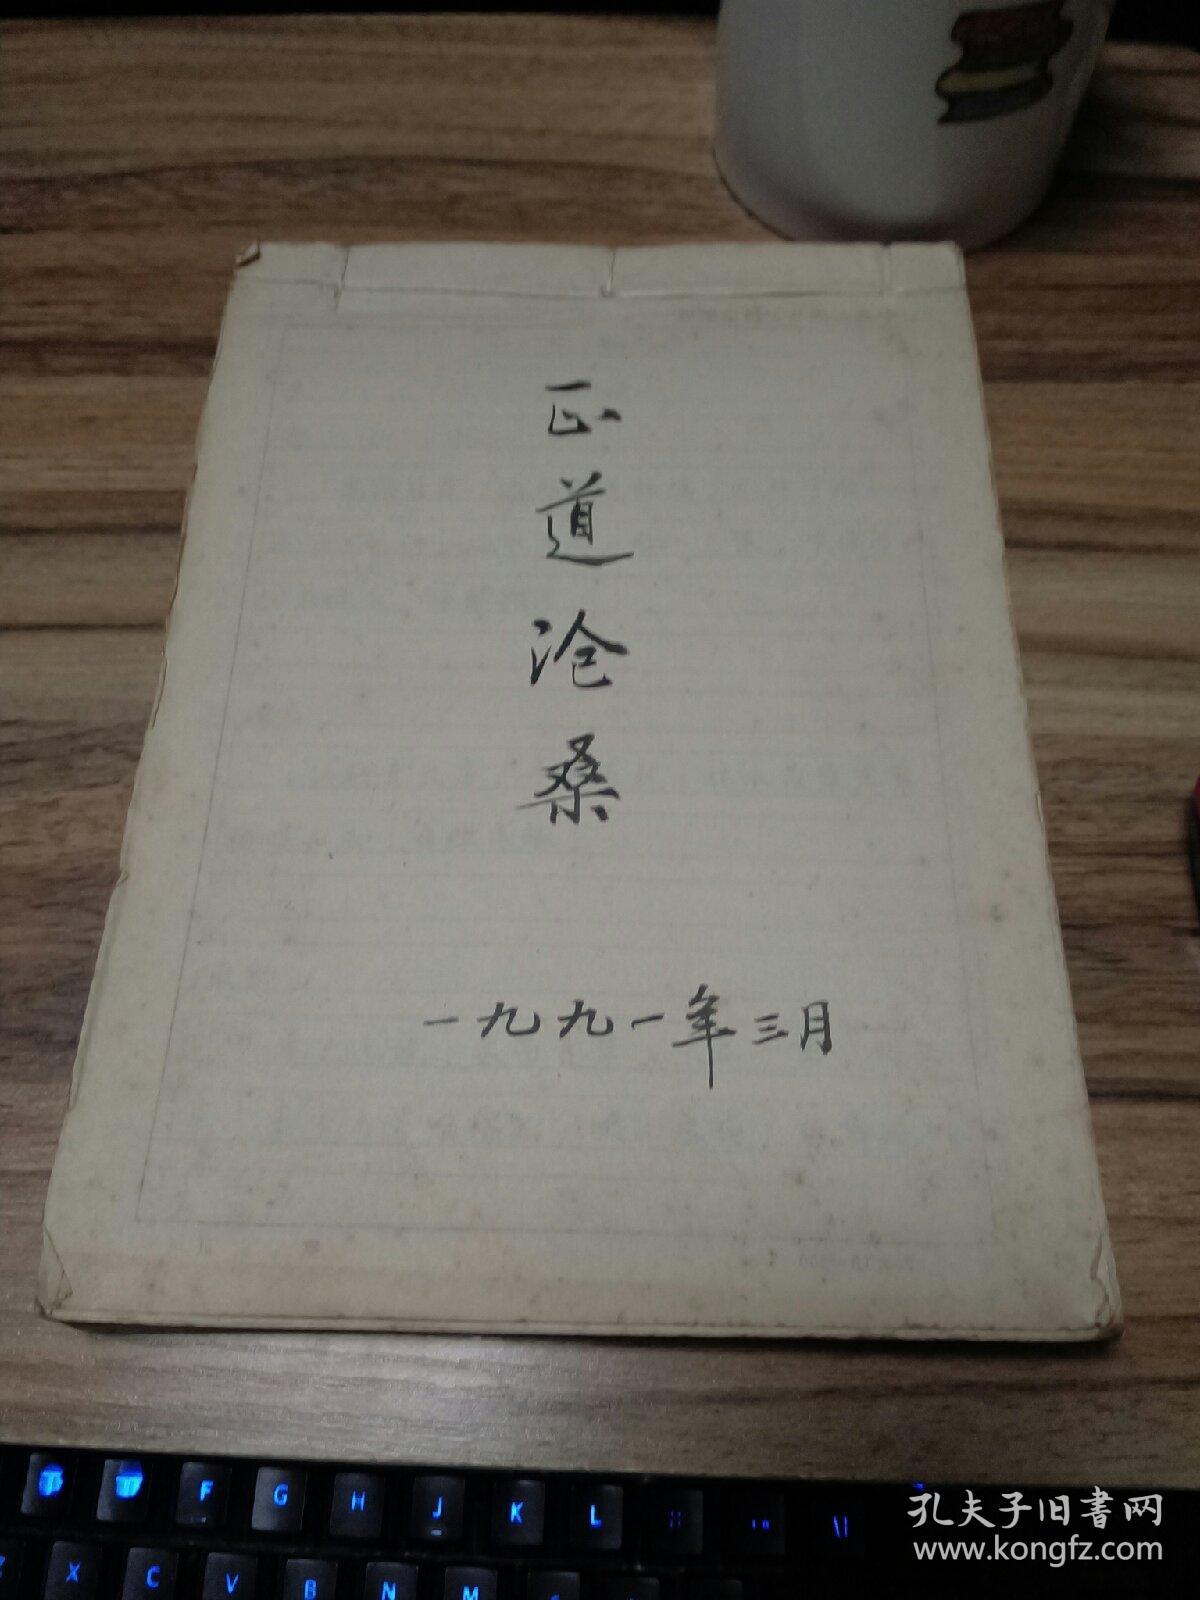 正道沧桑
一九九一年三月
F G H J K L
X C V B N M
孔夫子旧書网
www.kongfz.com